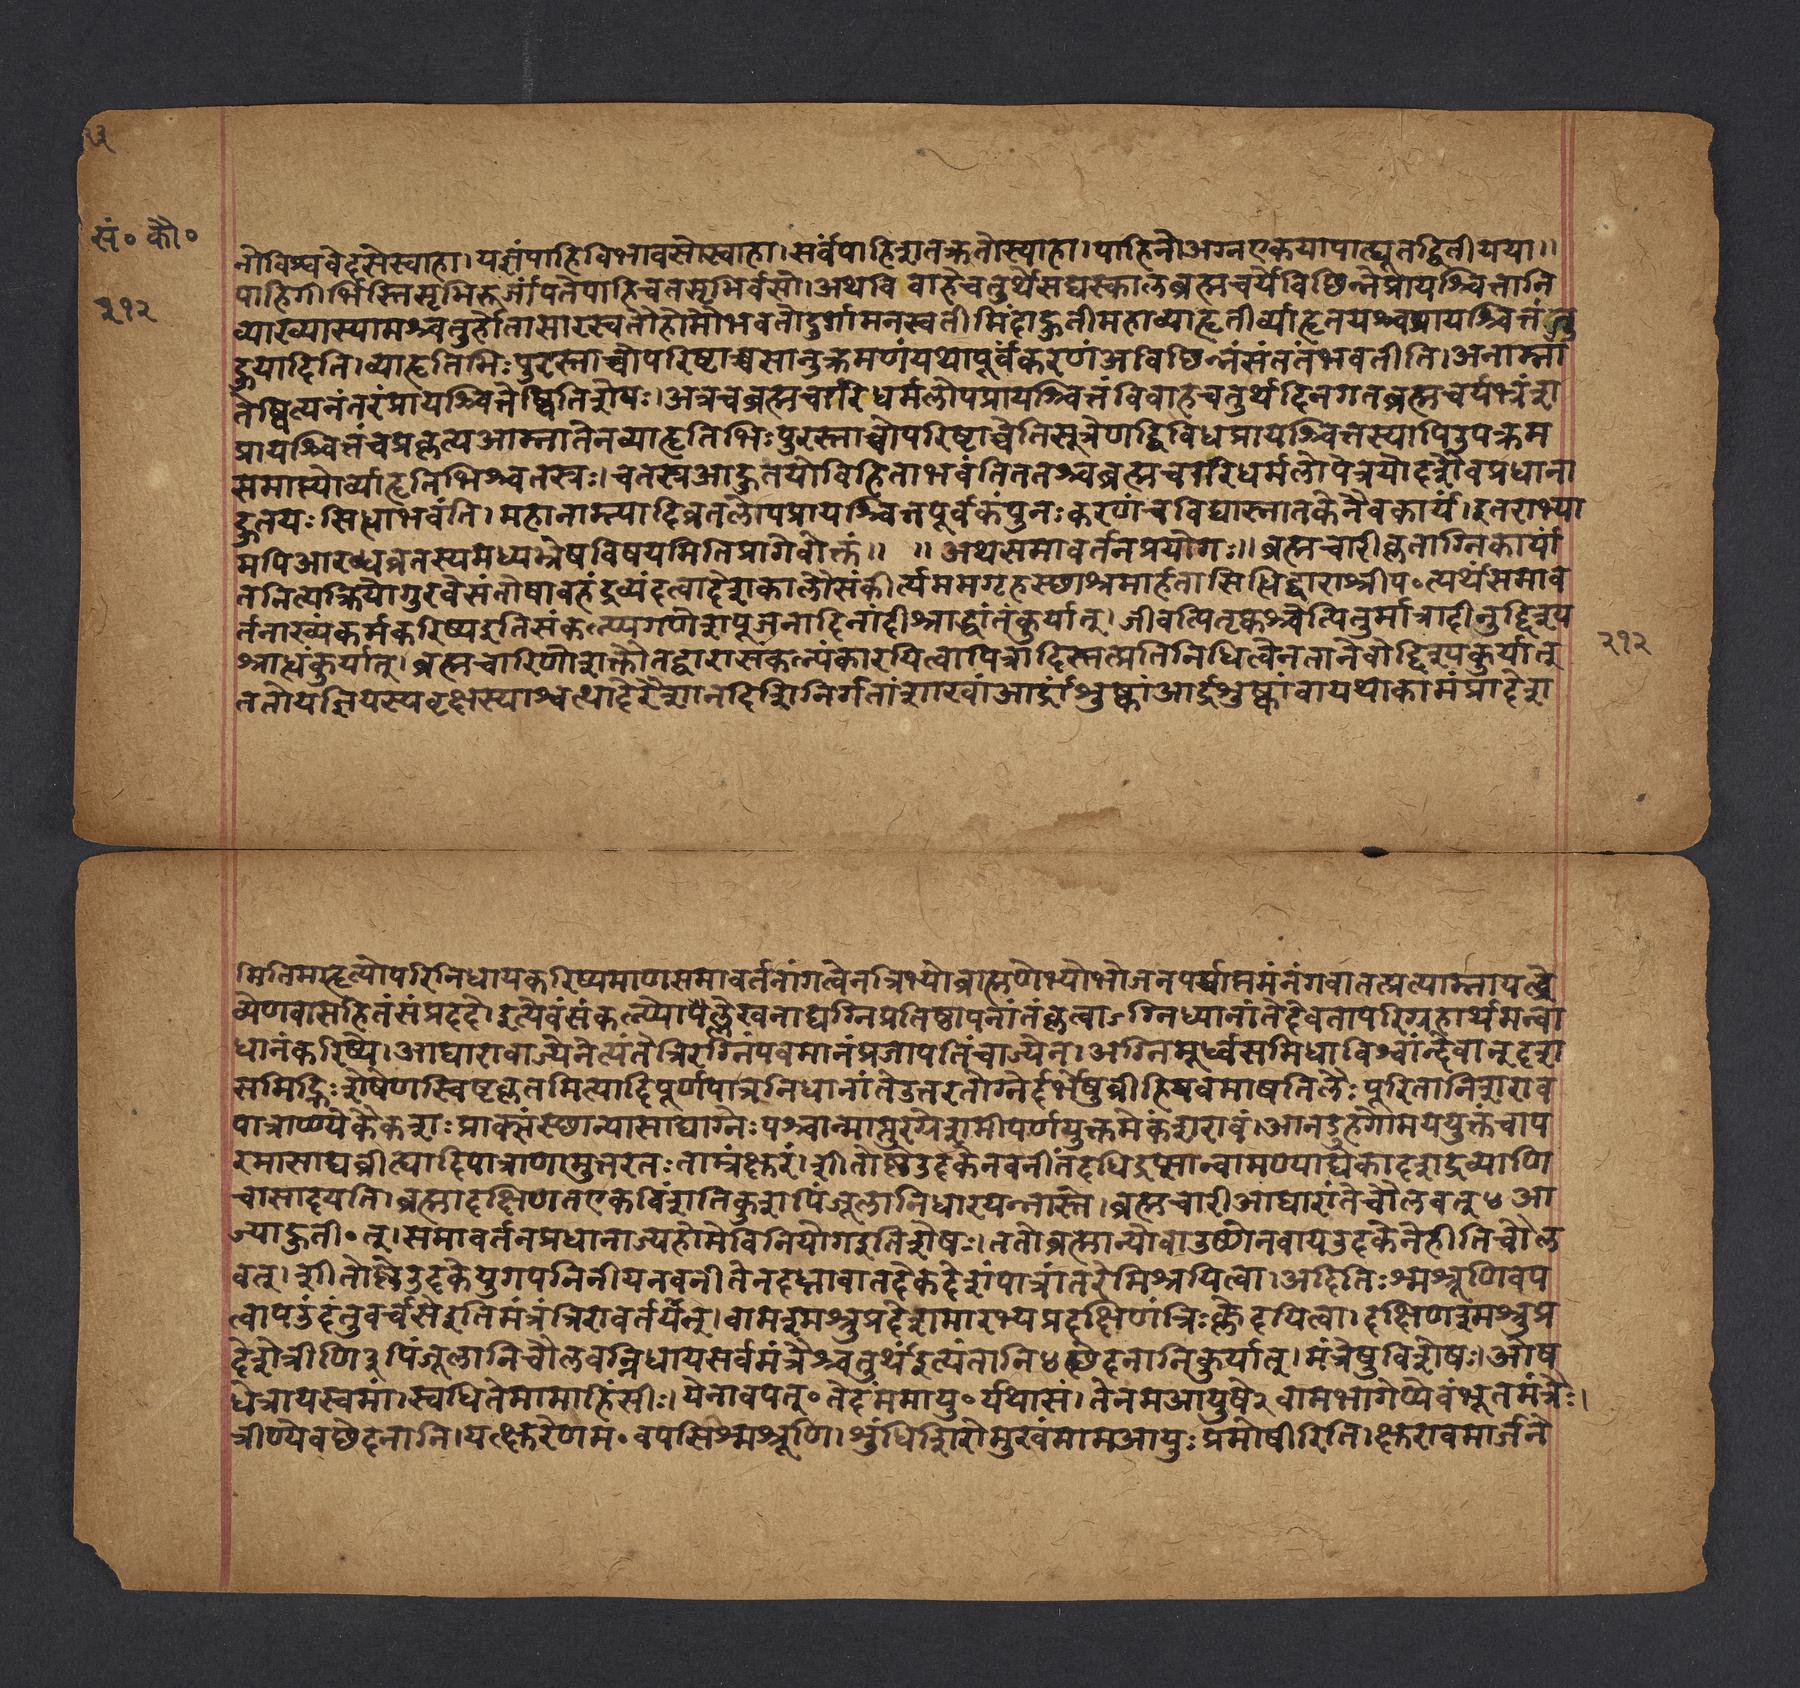 सं० कौ०
२१२
नोविश्ववेदसेस्वाहा।यज्ञंपाहिविभावसोस्वाहा।सर्वंपाहिशतक्रतोस्वाहा।पाहिनोअग्नएकयापात्द्यूतद्वितीयया॥
पाहिगीर्भिस्तिसृभिरूर्जांपतेपाहिचतसृभिर्वसो।अथविवाहेचतुर्थेसद्यस्कालेब्रह्मचर्येविछिन्नेप्रायश्चित्तानि
व्याख्यास्यामश्चतुर्होतासारस्वतौहोमौभवतोदुर्गामनस्वतीमिंदाहुतीमहाव्याहृतीर्व्याहृतयश्चप्रायश्चित्तंजु
हुयादिति।व्याहृतिभिःपुरस्ताच्चोपरिष्टाच्चसानुक्रमणंयथापूर्वंकरणंअविछिन्नंसंततंभवतीति।अनाम्ना
तेष्वित्यनंतरंप्रायश्चित्तेष्वितिशेषः।अत्रचब्रह्मचारिधर्मलोपप्रायश्चित्तंविवाहचतुर्थदिनगतब्रह्मचर्यभ्रंश
प्रायश्चित्तंचप्रकृत्यआम्नातेनव्याहृतिभिःपुरस्ताच्चोपरिष्टाच्चेतिसूत्रेणद्विविधप्रायश्चित्तस्यापिउपक्रम
समास्योर्व्याहृतिभिश्चतस्रः।चतस्रआहुतयोविहिताभवंतिततश्चब्रह्मचारिधर्मलोपेत्रयोदशैवप्रधाना
हुतयःसिध्धाभवंति।महानाम्न्यादिव्रतलोपप्रायश्चित्तपूर्वकंपुनःकरणंचविद्यास्नातकेनैवकार्यं।इतराभ्या
मपिआरब्धव्रतस्यमध्यभ्रेषविषयमितिप्रागेवोक्तं॥ ॥अथसमावर्तनप्रयोगः॥ब्रह्मचारीकृताग्निकार्या
तनित्यक्रियोगुरवेसंतोषावहंद्रव्यंदत्वादेशकालौसंकीर्त्यममगृहस्छाश्रमार्हतासिध्धिद्वाराश्रीप॰त्यर्थंसमाव
र्तनाख्यंकर्मकरिष्यइतिसंकल्प्यगणेशपूजनादिनांदीश्राद्धांतंकुर्यात्।जीवत्पितृकश्चेत्पितुर्मात्रादीनुद्दिश्य
श्राध्धंकुर्यात्।ब्रह्मचारिणोशक्तौतद्वारासंकल्पंकारयित्वापित्रादिस्तत्प्रतिनिधित्वेनतानेवोद्दिश्यकुर्यात्
ततोयज्ञियस्यवृक्षस्याश्वत्थादेरैशानदिशिनिर्गतांशाखांआर्द्रांशुष्कांआर्द्रशुष्कांवायथाकामंप्रादेश
२१२
मितिमाहृत्योपरिनिधायकरिष्यमाणसमावर्तनांगत्वेनत्रिभ्योब्राह्मणेभ्योभोजनपर्याप्तमंनंगवातत्प्रत्याम्नायद्र
व्येणवासहितंसंप्रददे।इत्येवंसंकल्प्योपलेखनाद्यग्निप्रतिष्ठापनांतंकृत्वाऽग्निध्यानांतेदेवतापरिग्रहार्थमन्वा
धानंकरिष्ये।आघारावाज्येनेत्यंतेत्रिरग्निंपवमानंप्रजापतिंचाज्येन।अग्निमूर्ध्वसमिधाविश्वान्देवान्दश
समिद्भिःशेषेणस्विष्टकृतमित्यादिपूर्णपात्रनिधानांतेउत्तरतोग्नेर्दर्भेषुव्रीहियवमाषतिलैःपूरितानिशराव
पात्राण्येकैकशःप्राक्संस्छान्यासाद्याग्नेःपश्चान्मातुरग्रेशमीपर्णयुक्तमेकंशरावं।आनडुहगोमययुक्तंचाप
रमासाद्यव्रीह्यादिपात्राणामुत्तरतःताम्रंक्षुरं।शीतोष्णेउदकेनवनीतंदधिद्रप्सान्वामण्याद्येकादशद्रव्याणि
चासादयति।ब्रह्मादक्षिणतएकविंशतिकुशपिंजूलानिधारयन्नास्ते।ब्रह्मचारीआघारांतेचौलवत्४आ
ज्याहुती॰त्।समावर्तनप्रधानाज्यहोमेविनियोगइतिशेषः।ततोब्रह्मान्योवाउष्णेनवायउदकेनेहीतिचौल
वत्।शीतोष्णेउदकेयुगपन्निनीयनवनीतेनदध्नावातदेकदेशंपात्रांतरेमिश्रयित्वा।अदितिःश्मश्रूणिवप
त्वापउंदंतुवर्चसेइतिमंत्रंत्रिरावर्तयेत्।वामश्मश्रुप्रदेशमारभ्यप्रदक्षिणंत्रिःक्लेदयित्वा।दक्षिणश्मश्रुप्र
देशेत्रीणि३पिंजूलानिचौलवन्निधायसर्वमंत्रैश्चतुर्थंइत्यंतानि४छेदनानिकुर्यात्।मंत्रेषुविशेषः।ओष
धेत्रायस्वमां।स्वधितेमामाहिंसीः।येनावपत्॰तेदंममायु॰र्यथासं।तेनमआयुषे२वामभागेप्येवंभूतमंत्रैः।
त्रीण्येवछेदनानि।यत्क्षुरेणम॰वपसिश्मश्रूणि।शुंधिशिरोमुखंमामआयुःप्रमोषीरिति।क्षुरावमार्जने